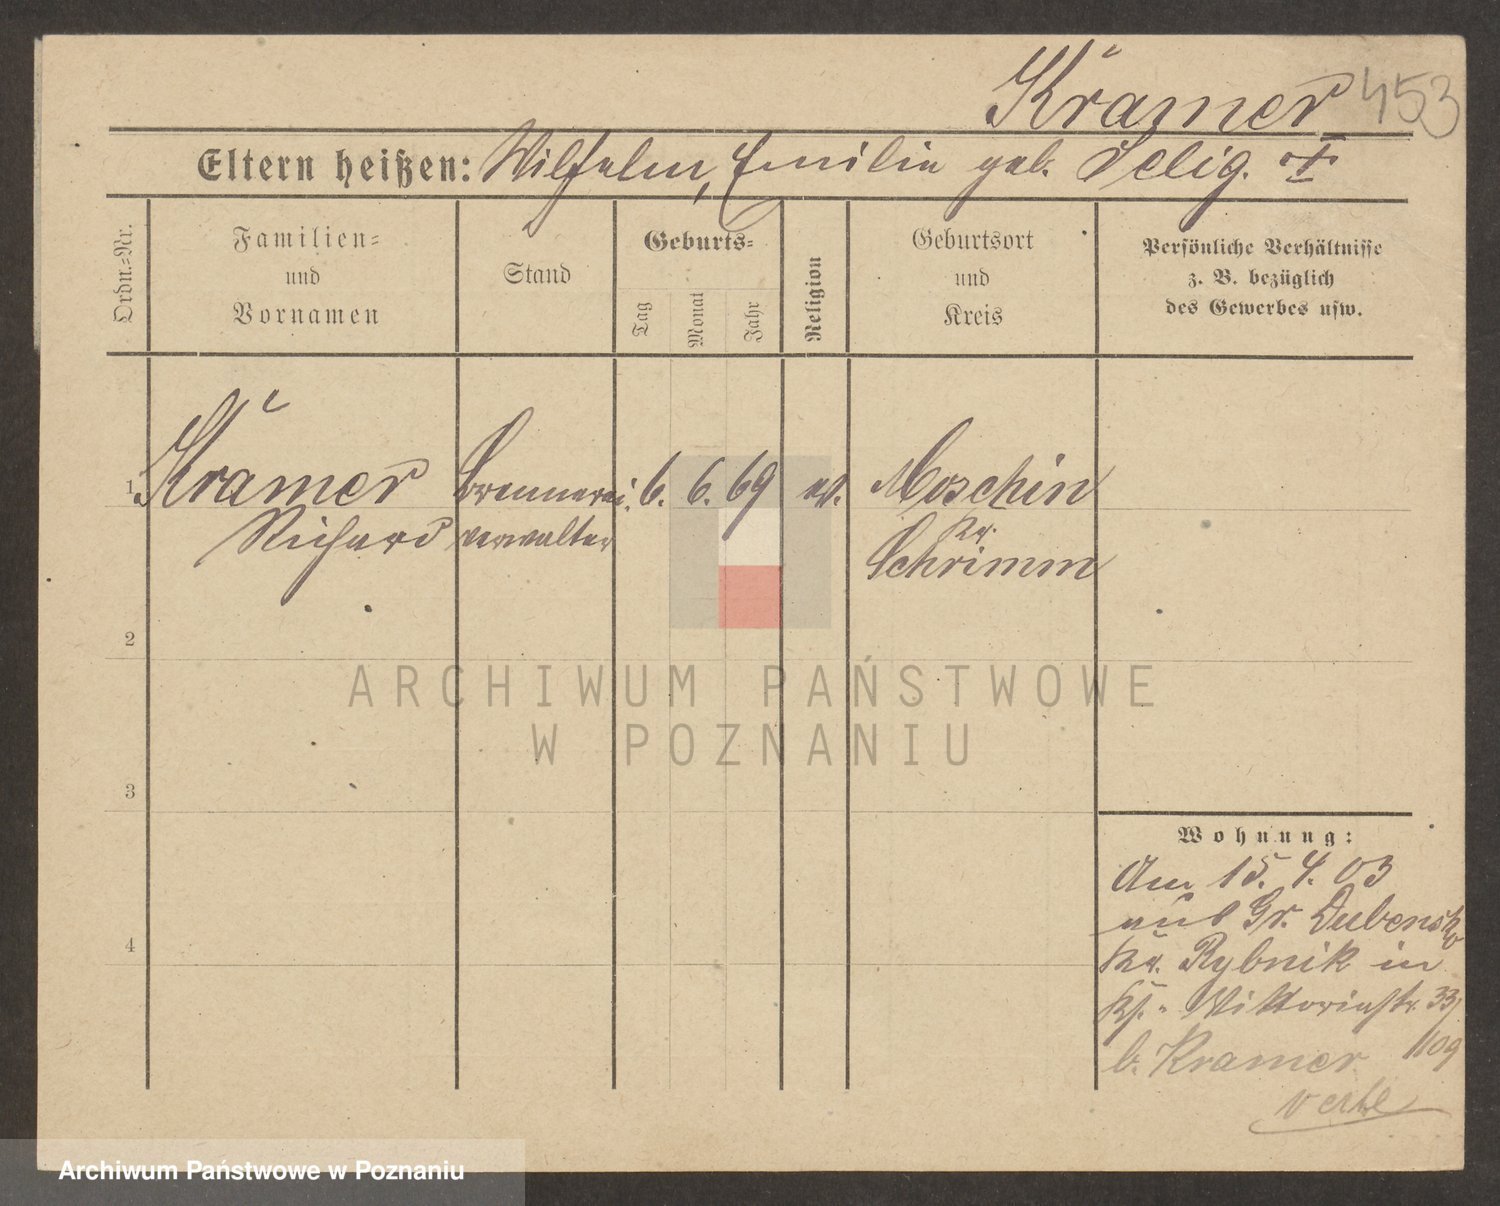 Krämer 453
Eltern heißen: Wilhelm, Emilie geb. Selig. ✝
Ordn.-Nr.
Familien-
und
Vornamen
Stand
Geburts-
Tag
Monat
Jahr
Religion
Geburtsort
und
Kreis
Persönliche Verhältnisse
z. B. bezüglich
des Gewerbes usw.
1 Krämer Brennerei 6. 6. 69 ev. Moschin
Richard verwalter Kr.
Schrimm
2
ARCHIWUM PAŃSTWOWE
W POZNANIU
3
Wohnung:
Am 15. 4. 03
aus Gr. Dubensko
Kr. Rybnik in
Viktoriastr. 33
b. Kramer 1109
verte
4
Archiwum Państwowe w Poznaniu